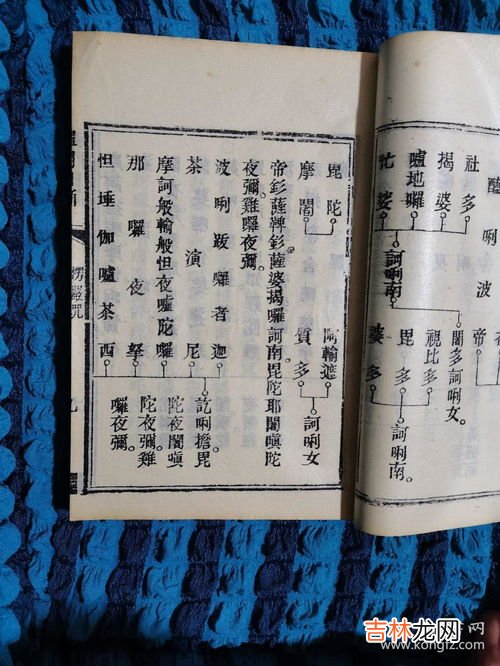 醯唎波
社多
揭婆
嚧地囉
忙娑
訶唎南
闍多訶唎女
視比多
毘多
婆多
訶唎南。
毘陀
摩闍
阿輸遮
質多
訶唎女
帝釤薩鞞釤薩婆揭囉訶南。毘陀耶闍瞋陀
夜彌雞囉夜彌。
波唎跋囉者迦
茶演尼
摩訶般輸般怛夜嚧陀囉
那囉夜拏
怛埵伽嚧茶西
訖唎擔毘
陀夜闍瞋
陀夜彌。雞
囉夜彌。
楞嚴咒
九
吉林龙网